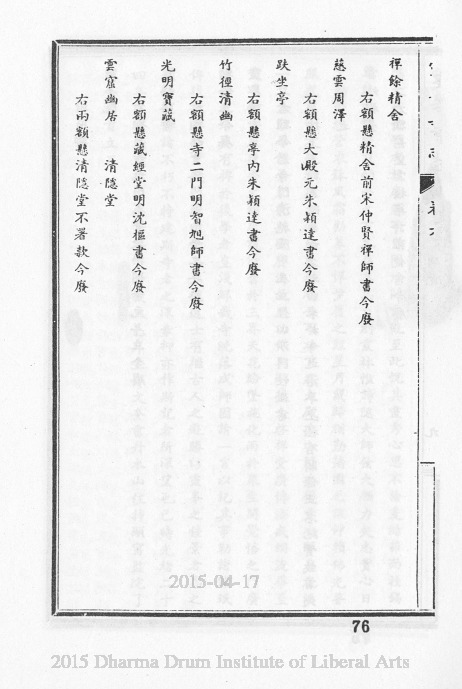 禪餘精舍
右額懸精舍前宋仲賢禪師書今廢
慈雲周澤
右額懸大殿元朱穎達書今廢
趺坐亭
右額懸亭內朱穎達書今廢
竹徑清幽
右額懸寺二門明智旭師書今廢
光明寶藏
右額懸藏經堂明沈樞書今廢
雲窟幽居　清隱堂
右兩額懸清隱堂不署款今廢
76
2015-04-17
2015 Dharma Drum Institute of Liberal Arts